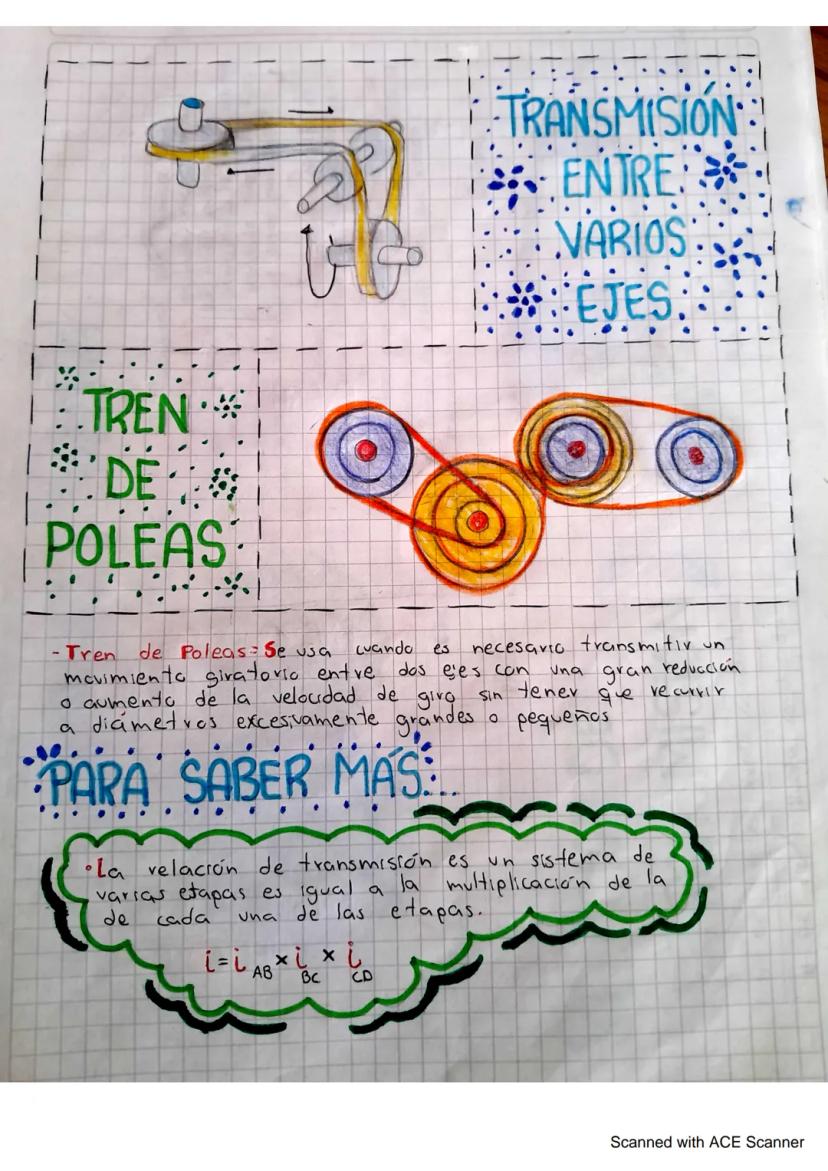 TRANSMISIÓN
ENTRE
VARIOS
EJES.
TREN
DE
POLEAS
- Tren de Poleas: Se usa cuando es necesario transmitir un
movimiento giratorio entre dos ejes con una gran reducción
o aumento de la velocidad de giro sin tener que recurrir
a diámetros excesivamente grandes o pequeños
PARA SABER MÁS...
• La relación de transmisión es un sistema de
varias etapas es igual a la multiplicación de la
de cada una de las etapas.
i = i AB × i BC × i CD
Scanned with ACE Scanner